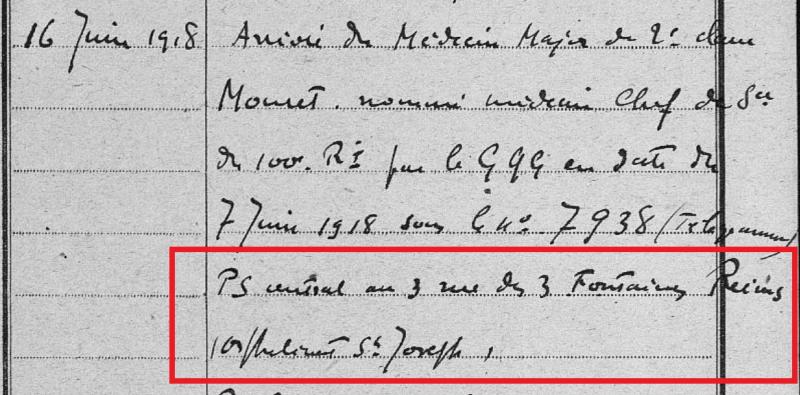 16 Juin 1918 Arrivée du Médecin Major de 2e classe
Mouret. nommé médecin Chef de Sce
du 100e RI par le GQG en date du
7 Juin 1918 sous le no 7938 (Télégramme)
PS central au 3 rue des 3 Fontaines Reims
(orphelinat St Joseph,